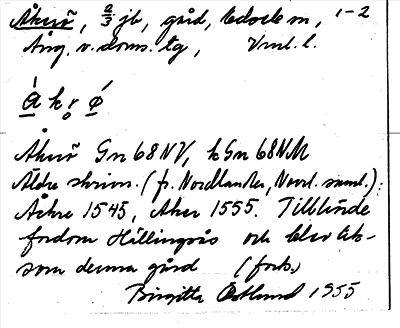 Åkerö, 2/3 jb, gård, Edsele sn, 1-2
Ång. v. doms. tg, Vnrl. l.
å k r ö
Åkerö Gn 68 NV, kGn 68 NM
Äldre skrivn. (fr. Nordlander, Norrl. saml.):
Åchre 1545, Aker 1555. Tillhörde
fordom Hällingsås och blev
som denna gård (forts.)
Birgitta Östlund 1955